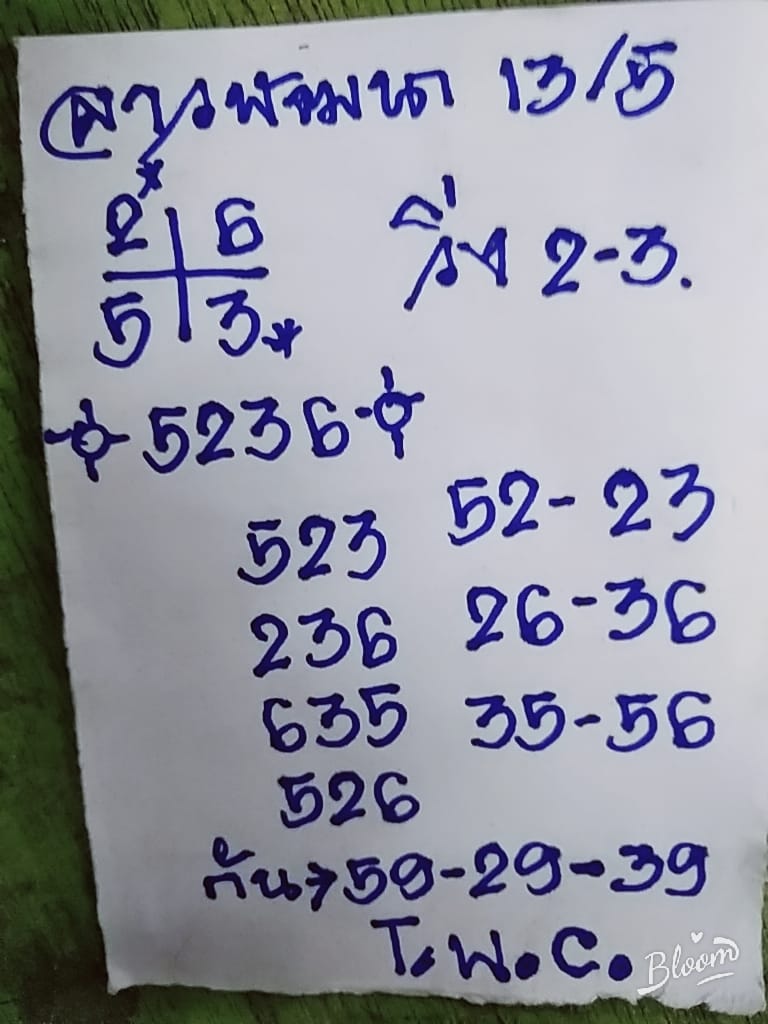 ลาวพัฒนา 13/5
2* 6
5 3*
วิ่ง 2-3.
5236
523 52-23
236 26-36
635 35-56
526
กัน→59-29-39
T.พ.C.
Bloom